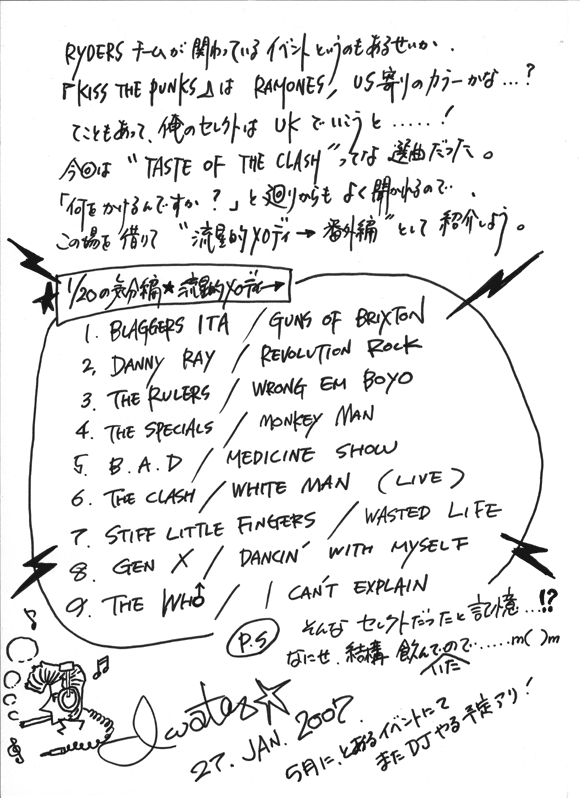 RYDERS チームが関わっているイベントというのもあるせいか、
『KISS THE PUNKS』は RAMONES, US寄りのカラーかな…?
てこともあって、俺のセレクトは UKでいこうと……!
今回は "TASTE OF THE CLASH" ってな 選曲だった。
「何をかけるんですか?」と廻りからも よく聞かれるので、
この場を借りて "流星的メロディ→ 番外編" として 紹介しよう。
1/20の気分編★流星的メロディ→
1. BLAGGERS ITA / GUNS OF BRIXTON
2. DANNY RAY / REVOLUTION ROCK
3. THE RULERS / WRONG EM BOYO
4. THE SPECIALS / MONKEY MAN
5. B.A.D / MEDICINE SHOW
6. THE CLASH / WHITE MAN (LIVE)
7. STIFF LITTLE FINGERS / WASTED LIFE
8. GEN X / DANCIN' WITH MYSELF
9. THE WHO / I CAN'T EXPLAIN
P.S そんな セレクトだったと 記憶…!?
なにせ、結構 飲んでいたので……m( )m
27. JAN. 2007.
5月に、とあるイベントにて
また DJ やる予定アリ!